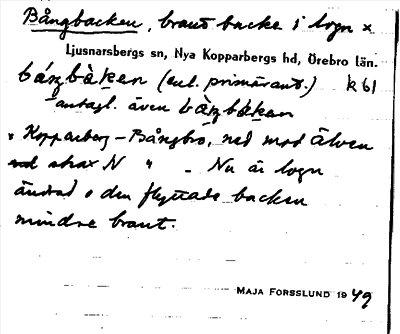 Bångbacken, brant backe i logn x
Ljusnarsbergs sn, Nya Kopparbergs hd, Örebro län.
(enl. primäruppt.) k 61
antagl. även
x Kopparberg – Bångbro, ned mod älven
strax N " . Nu är logn
ändrad o den flyttade backen
mindre brant.
MAJA FORSSLUND 1949